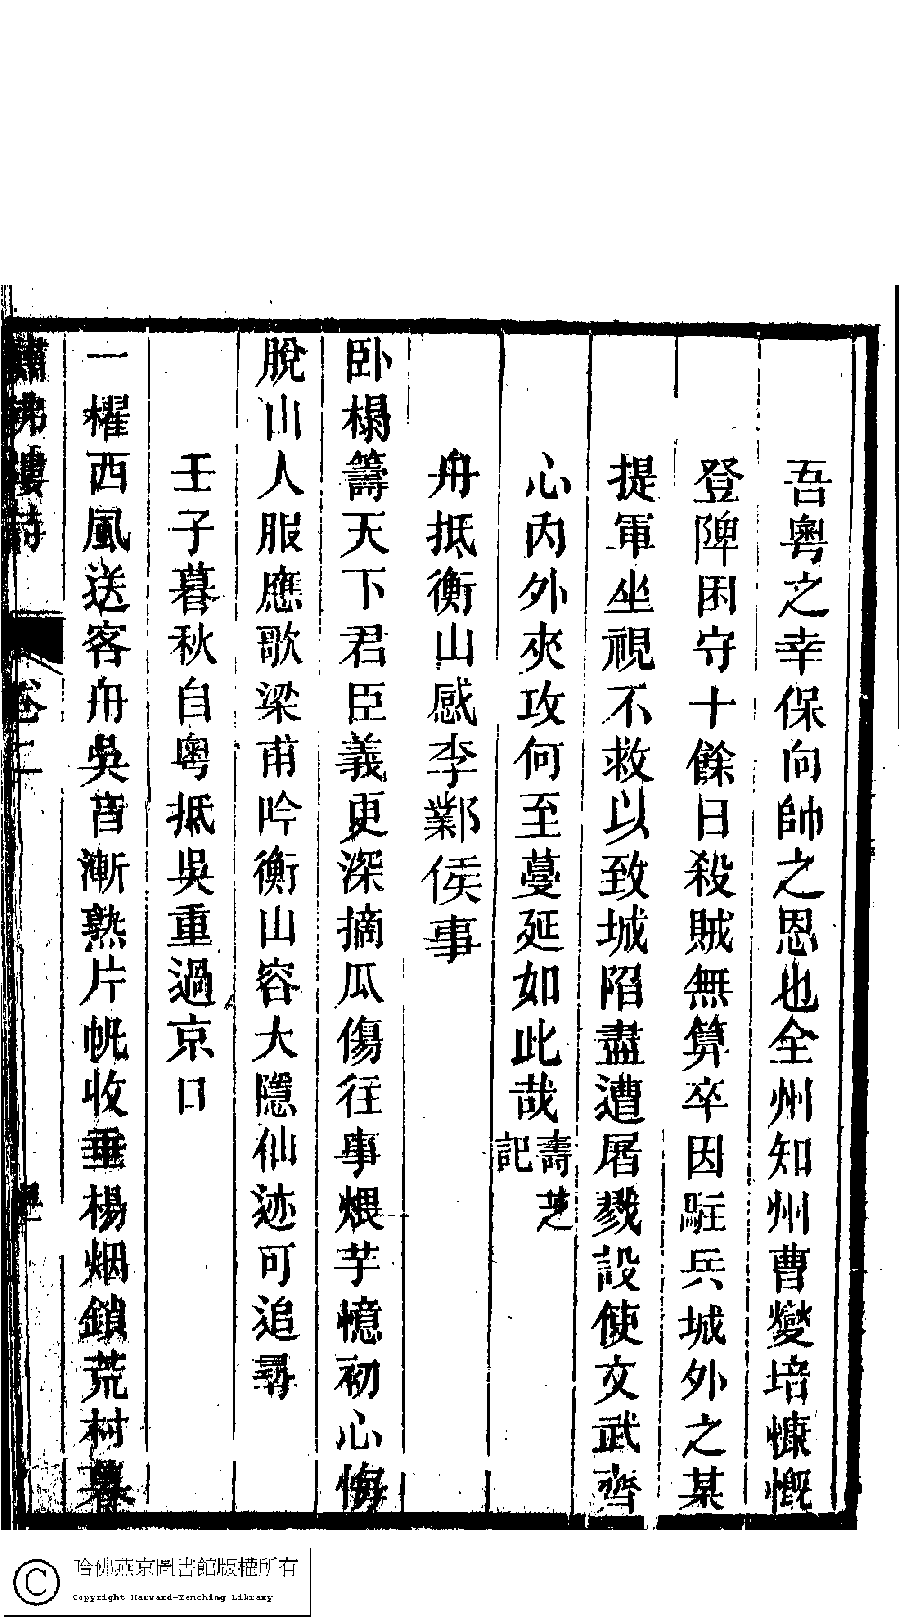 吾粵之幸保向帥之恩也全州知州曹燮培慷慨
登陴困守十餘日殺賊無算卒因駐兵城外之某
提軍坐視不救以致城陷盡遭屠戮設使文武齊
心內外夾攻何至蔓延如此哉壽芝記
舟抵衡山感李鄴侯事
卧榻籌天下君臣義更深摘瓜傷往事煨芋憶初心悔
脫山人服應歌梁甫吟衡山容大隱仙迹可追尋
壬子暮秋自粵抵吳重過京口
一櫂西風送客舟吳音漸熟片帆收垂楊烟鎖荒村暮
繡佛樓詩 卷二
哈佛燕京圖書館版權所有
Copyright Harvard-Yenching Library